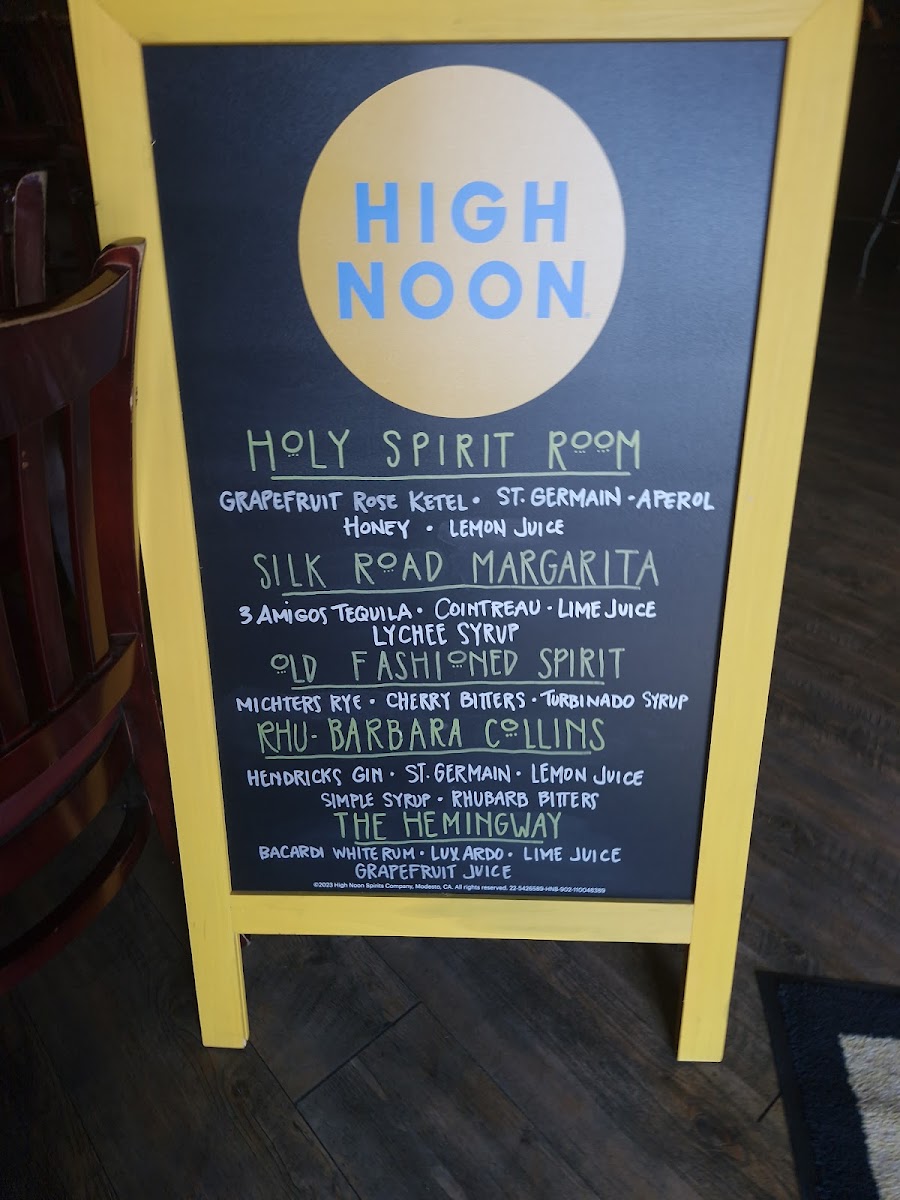 HIGH
NOON
HOLY SPIRIT ROOM
GRAPEFRUIT ROSE KETEL · ST. GERMAIN · APEROL
HONEY · LEMON JUICE
SILK ROAD MARGARITA
3 AMIGOS TEQUILA · COINTREAU · LIME JUICE
LYCHEE SYRUP
OLD FASHIONED SPIRIT
MICHTERS RYE · CHERRY BITTERS · TURBINADO SYRUP
RHU-BARBARA COLLINS
HENDRICKS GIN · ST. GERMAIN · LEMON JUICE
SIMPLE SYRUP · RHUBARB BITTERS
THE HEMINGWAY
BACARDI WHITE RUM · LUXARDO · LIME JUICE
GRAPEFRUIT JUICE
©2023 High Noon Spirits Company, Modesto, CA. All rights reserved. 22-5426589-HNS-902-110046389